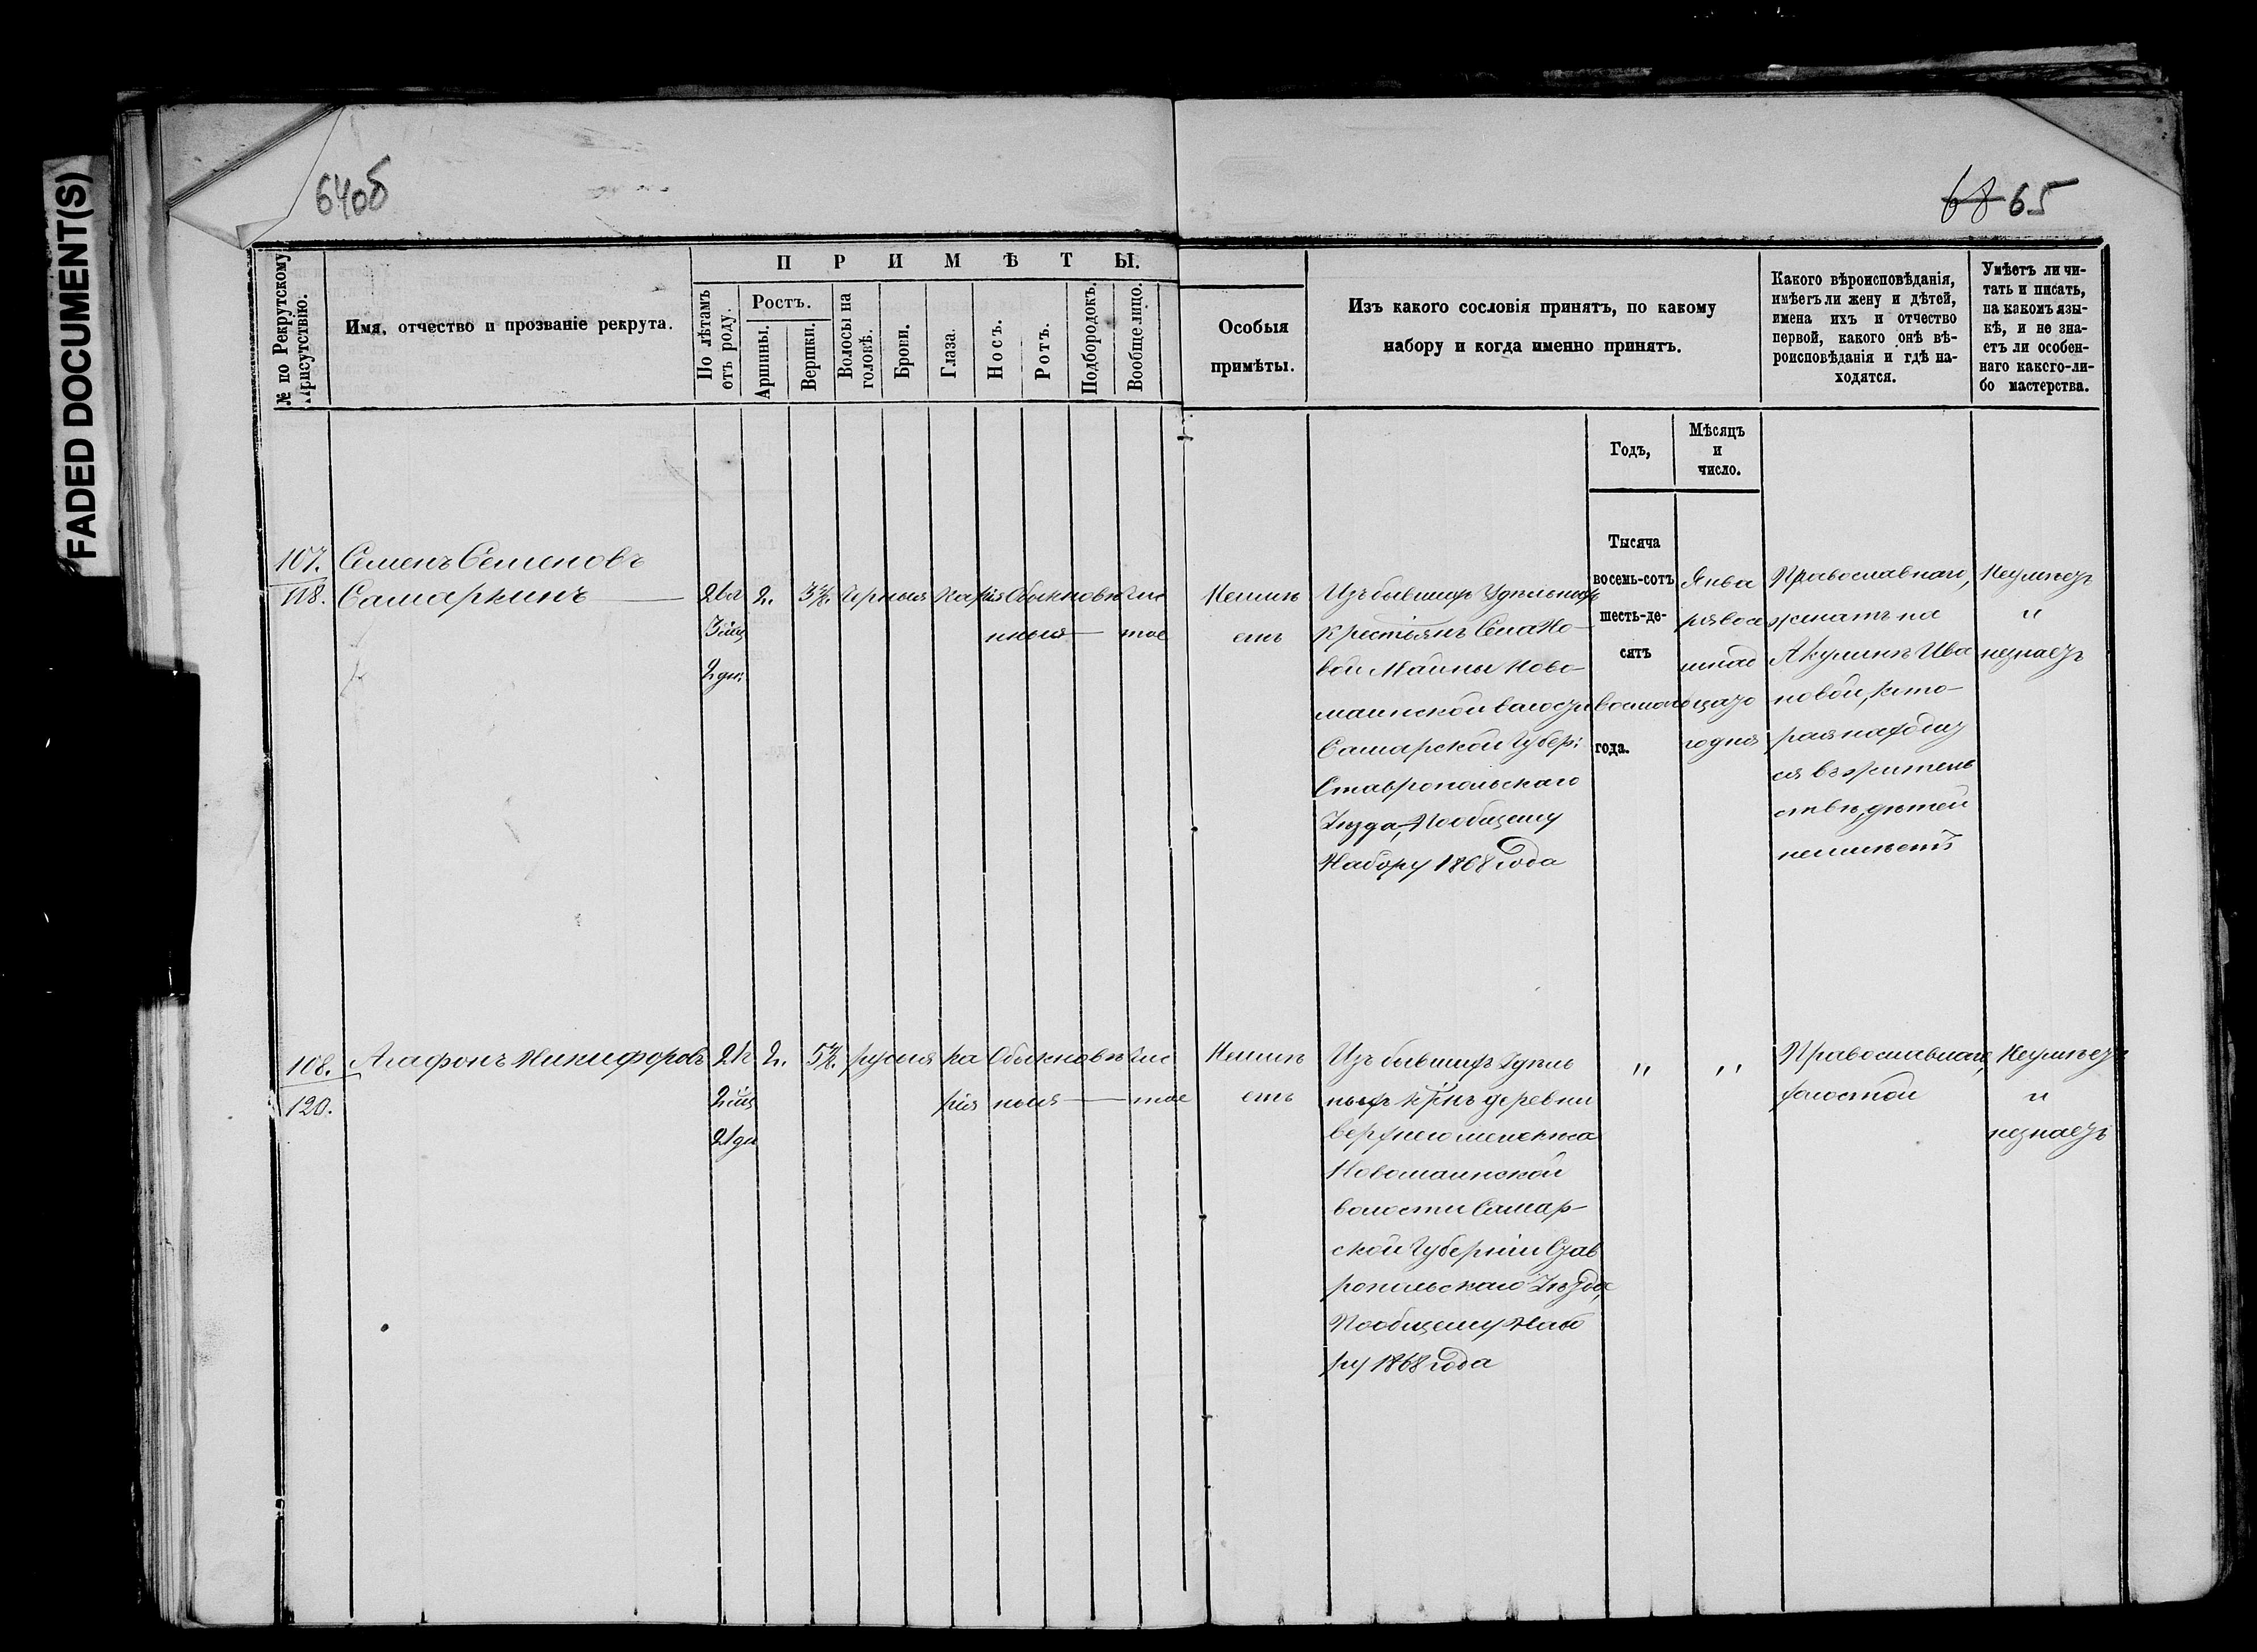 FADED DOCUMENT(S)
64об
68 65
П Р И М Ѣ Т Ы.
№ по Рекрутскому Присутствію.
Имя, отчество и прозваніе рекрута.
По лѣтамъ отъ роду.
Ростъ.
Аршины.
Вершки.
Волосы на головѣ.
Брови.
Глаза.
Носъ.
Ротъ.
Подбородокъ.
Вообще лицо.
Особыя
примѣты.
Изъ какого сословія принятъ, по какому
набору и когда именно принятъ.
Какого вѣроисповѣданія,
имѣетъ ли жену и дѣтей,
имена ихъ и отчество
первой, какого онѣ вѣ-
роисповѣданія и гдѣ на-
ходятся.
Умѣетъ ли чи-
тать и писать,
на какомъ язы-
кѣ, и не зна-
етъ ли особен-
наго какого-ли-
бо мастерства.
Годъ,
Мѣсяцъ
и
число.
107.
118.
Семенъ Семеновъ
Самаркинъ
21л
3 мц
2 дн:
2.
3 4/8.
Черныя
Карія
Обыкнове
нныя
Чис
тое
Неимѣ
етъ
Изъ бывшихъ Удѣльныхъ
крестьянъ Села Но-
вой Майны Ново-
маинской волости
Самарской Губер:
Ставропольскаго
Уѣзда, Пообщему
Набору 1868 Года
Тысяча
восемь-сотъ
шесть-де-
сятъ
восмого
года.
Янва
ря вос
мнад
цаго
годня
Православнаго,
женатъ на
Акулинѣ Ива
новой, кото-
рая находит
ся въ житель
ствѣ, дѣтей
неимѣетъ
Неумѣетъ
и
незнаетъ
108.
120.
Агафонъ Никифоровъ
21г
2 мц
21 дн
2.
5 4/8.
русыя
ка
рія
Обыкнове
ныя
Чис
тое
Неимѣ
етъ
Изъ бывшихъ Удѣль
ныхъ крнъ деревни
верхнего мелекеса
Новомаинской
волости Самар-
ской Губерніи Став
ропольскаго Уѣзда,
Пообщему Набо
ру 1868 года
" "
Православнаго,
холостой
Неумѣетъ
и
незнаетъ